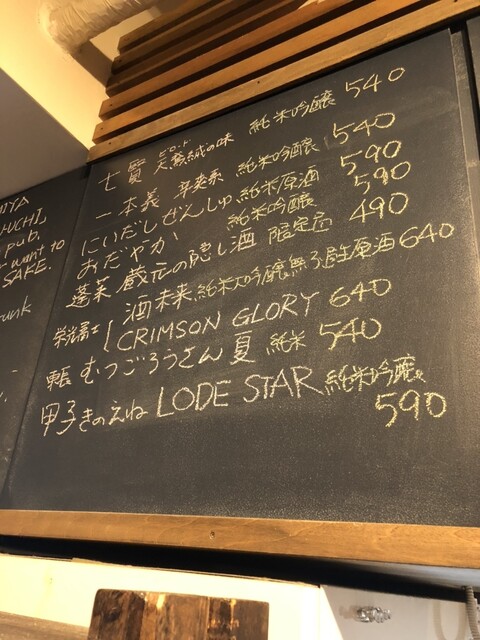 七賢 天鵞絨の味 純米吟醸 540
ビロード
一本義 辛爽系 純米吟醸 540
にいだしぜんしゅ 純米原酒 590
おだやか 純米吟醸 590
蓬莱 蔵元の隠し酒 限定品 490
酒未来 純米大吟醸無ろ過生原酒 640
栄光冨士
CRIMSON GLORY 640
東長 むつごろうさん 夏 純米 540
甲子きのえね LODE STAR 純米吟醸
590
IYA
UCHI
pub.
want to
SAKE.
unk